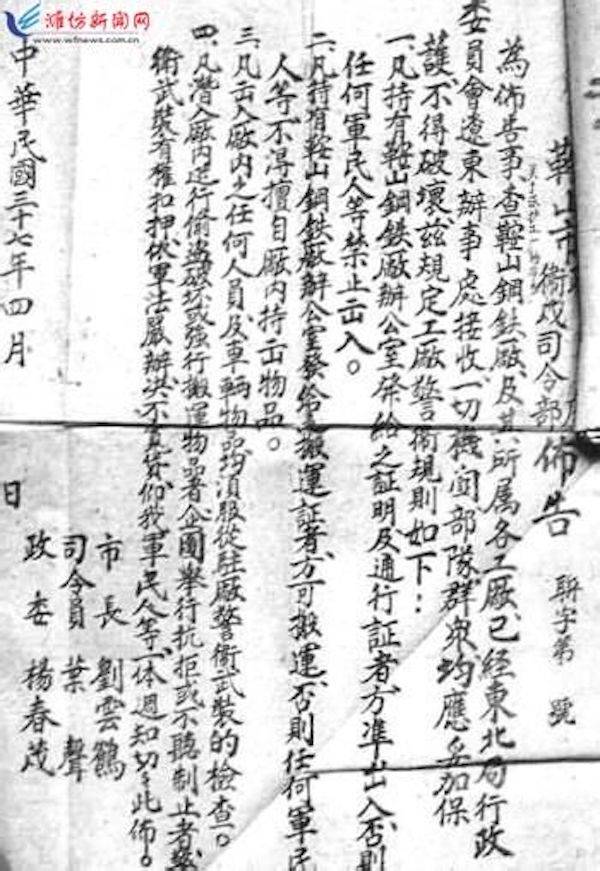 潍坊新闻网
www.wfnews.com.cn
鞍山市政府
衛戍司令部
佈告
聯字第 號
為佈告事查鞍山鋼鉄廠及其所属各工廠已経東北局行政
委員會遼東辦事處接收一切機関部隊群眾均應妥加保
護不得破壞茲規定工廠警衛規則如下:
一、凡持有鞍山鋼鉄廠辦公室發給之証明及通行証者方準出入否則
任何軍民人等禁止出入。
二、凡持有鞍山鋼鉄廠辦公室發給搬運証者方可搬運、否則任何軍民
人等不得擅自廠內持出物品。
三、凡出入廠內之任何人員及車輛物品均須服從駐廠警衛武裝的檢查。
四、凡潛入廠內進行偷盗破坏或強行搬運物品署企圖舉行抗拒或不聽制止者警
衛武裝有權扣押依軍法嚴辦決不寬貸仰我軍民人等一体週知切切此佈。
市長 劉雲鶴
司令員 葉聲
政委 楊春茂
中華民國三十七年四月 日